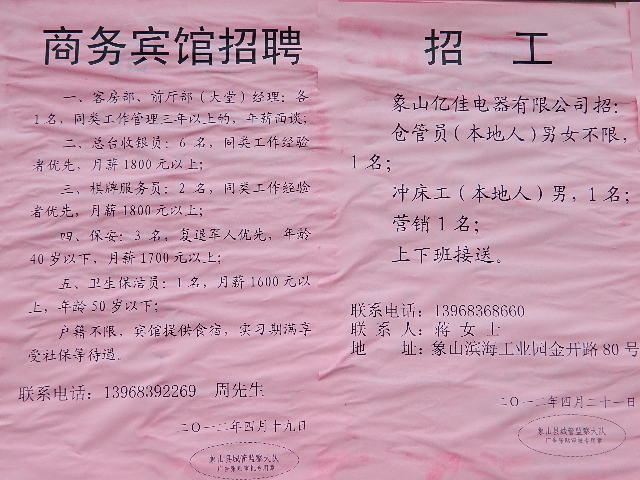 商务宾馆招聘
一、客房部、前厅部（大堂）经理：各
1名，同类工作管理三年以上的，年薪面谈；
二、总台收银员：6名，同类工作经验
者优先，月薪1800元以上；
三、棋牌服务员：2名，同类工作经验
者优先，月薪1800元以上；
四、保安：3名，复退军人优先，年龄
40岁以下，月薪1700元以上；
五、卫生保洁员：1名，月薪1600元以
上，年龄50岁以下；
户籍不限，宾馆提供食宿，实习期满享
受社保等待遇。
联系电话：13968392269 周先生
二〇一二年四月十九日
象山县城管监察大队
招 工
象山亿佳电器有限公司招：
仓管员（本地人）男女不限，
1名；
冲床工（本地人）男，1名；
营销1名；
上下班接送。
联系电话：13968368660
联系人：蒋女士
地 址：象山滨海工业园金开路80号
二〇一二年四月二十一日
象山县城管监察大队